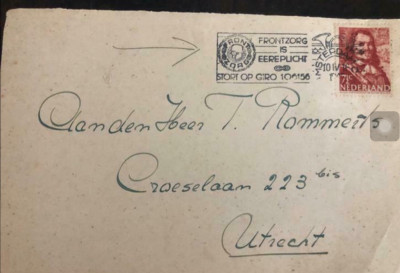 FRONTZORG
IS
EEREPLICHT
STORT OP GIRO 106156
7½
NEDERLAND
Aan den Heer T. Rommerts
Croeselaan 223 bis
Utrecht